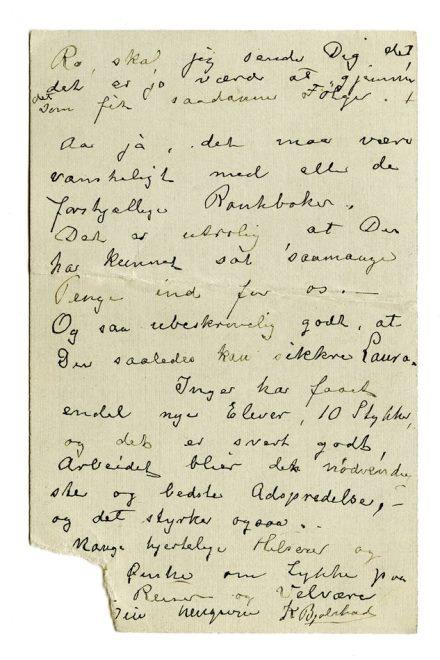 Ro, skal jeg sende Dig det
det er jo værd at gjemme
det
som fik saadanne Følger. +
Aa ja, det maa være
vanskeligt med alle de
forskjællige Bankbøker.
Det er utrolig at Du
har kunnet sat saamange
Penge ind for os. —
Og saa ubeskrivelig godt, at
Du saaledes kan sikkre Laura.
Inger har faaet
endel nye Elever, 10 Stykker,
og det er svært godt,
Arbeidet blier det nødvendig
ste og bedste Adspredelse, –
og det styrker ogsaa..
Mange hjertelige Hilsener og
Ønske om Lykke paa
Reisen og Velvære
Din hengivne K Bjølstad